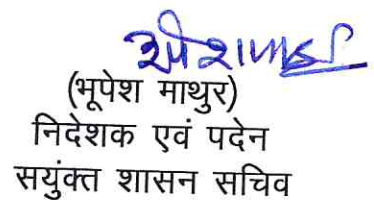 (भूपेश माथुर)
निदेशक एवं पदेन
सयुंक्त शासन सचिव